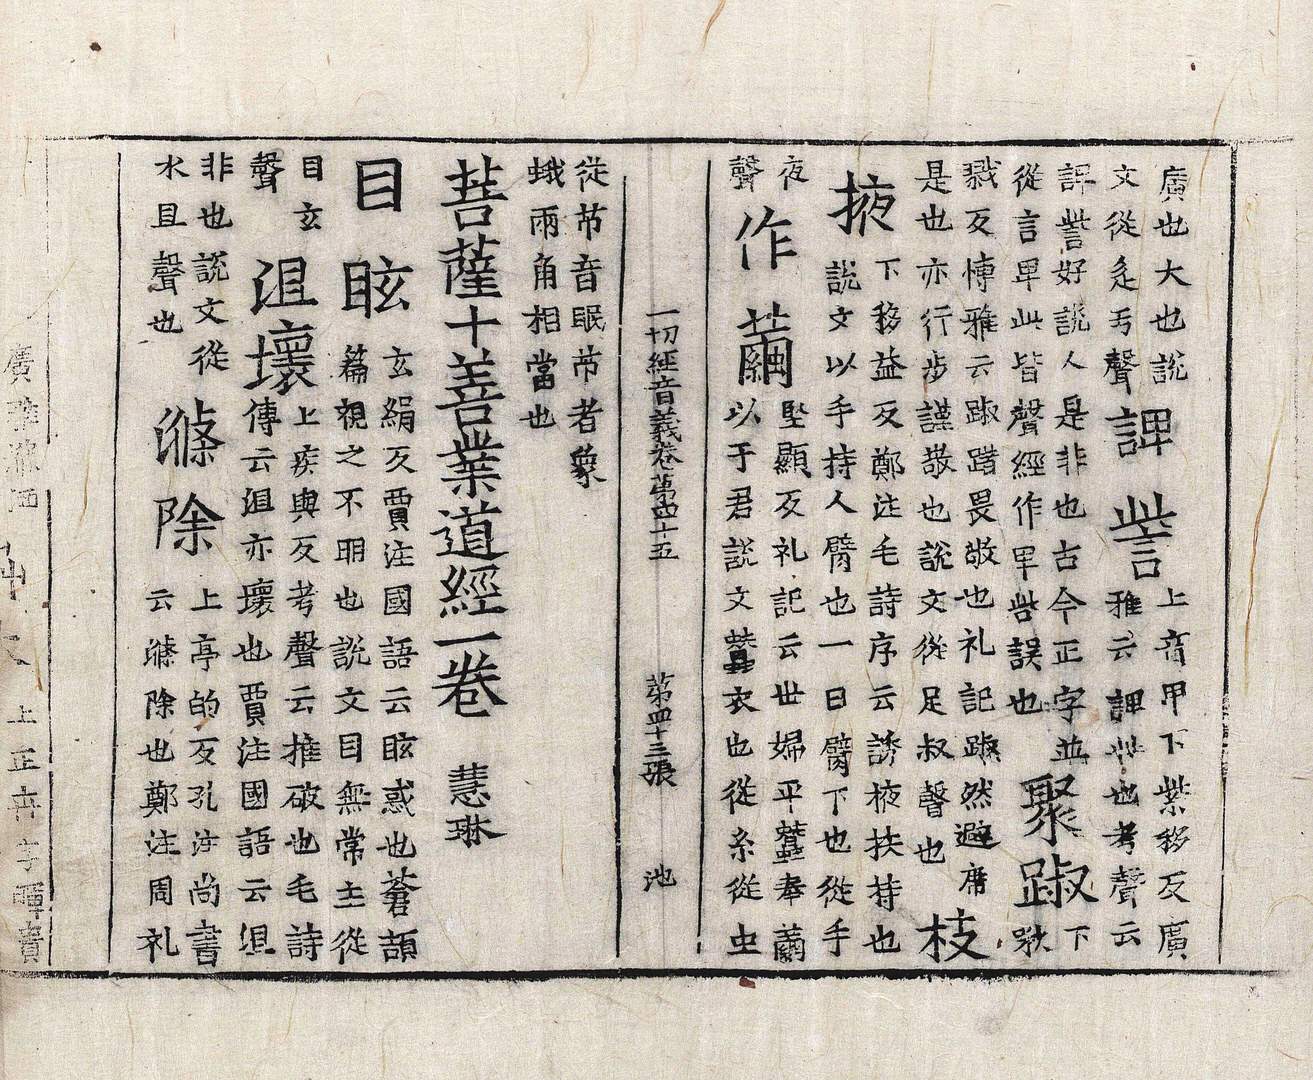 廣也大也說
文從辵丂聲
諀訾
上音甲下紫移反廣
雅云諀訾也考聲云
諀訾好說人是非也古今正字並
從言卑此皆聲經作卑呰誤也
聚踧
下
戮反博雅云踧踖畏敬也礼記踧然避席
是也亦行步謹敬也說文從足叔聲也
枝
掖
下移益反鄭注毛詩序云誘掖扶持也
說文以手持人臂也一曰臂下也從手
夜
聲
作繭
堅顯反礼記云世婦平蠶奉繭
以于君說文蠶衣也從糸從虫
一切經音義卷第四十五 第四十三張 池
從芇音眠芇者象
蛾兩角相當也
菩薩十善業道經一卷 慧琳
目眩
玄絹反賈注國語云眩惑也蒼頡
篇視之不明也說文目無常主從
目玄
聲
沮壞
上疾與反考聲云推破也毛詩
傳云沮亦壞也賈注國語云沮
非也說文從
水且聲也
滌除
上亭的反孔注尚書
云滌除也鄭注周礼
廣雅滌洒
上正齊字